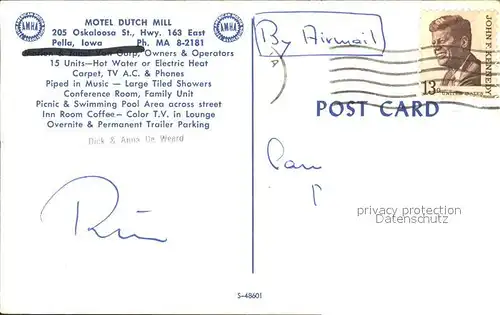 AMHA
MOTEL DUTCH MILL
AMHA
205 Oskaloosa St., Hwy. 163 East
Pella, Iowa Ph. MA 8-2181
Owners & Operators
15 Units—Hot Water or Electric Heat
Carpet, TV A.C. & Phones
Piped in Music — Large Tiled Showers
Conference Room, Family Unit
Picnic & Swimming Pool Area across street
Inn Room Coffee— Color T.V. in Lounge
Overnite & Permanent Trailer Parking
Dick & Anna De Weerd
By Airmail
13c
UNITED STATES
JOHN F. KENNEDY
POST CARD
privacy protection
Datenschutz
S-48601